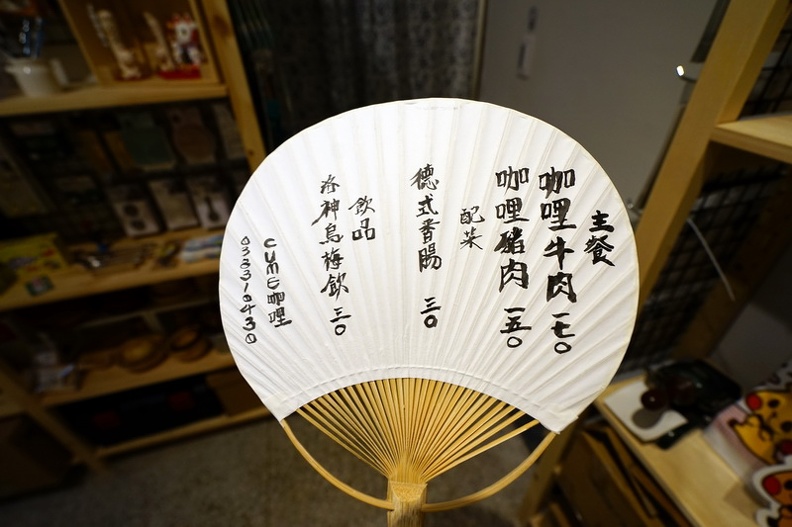 主餐
咖哩牛肉 一七〇
咖哩豬肉 一五〇
配菜
德式香腸 三〇
飲品
洛神烏梅飲 三〇
CUME咖哩
033310430